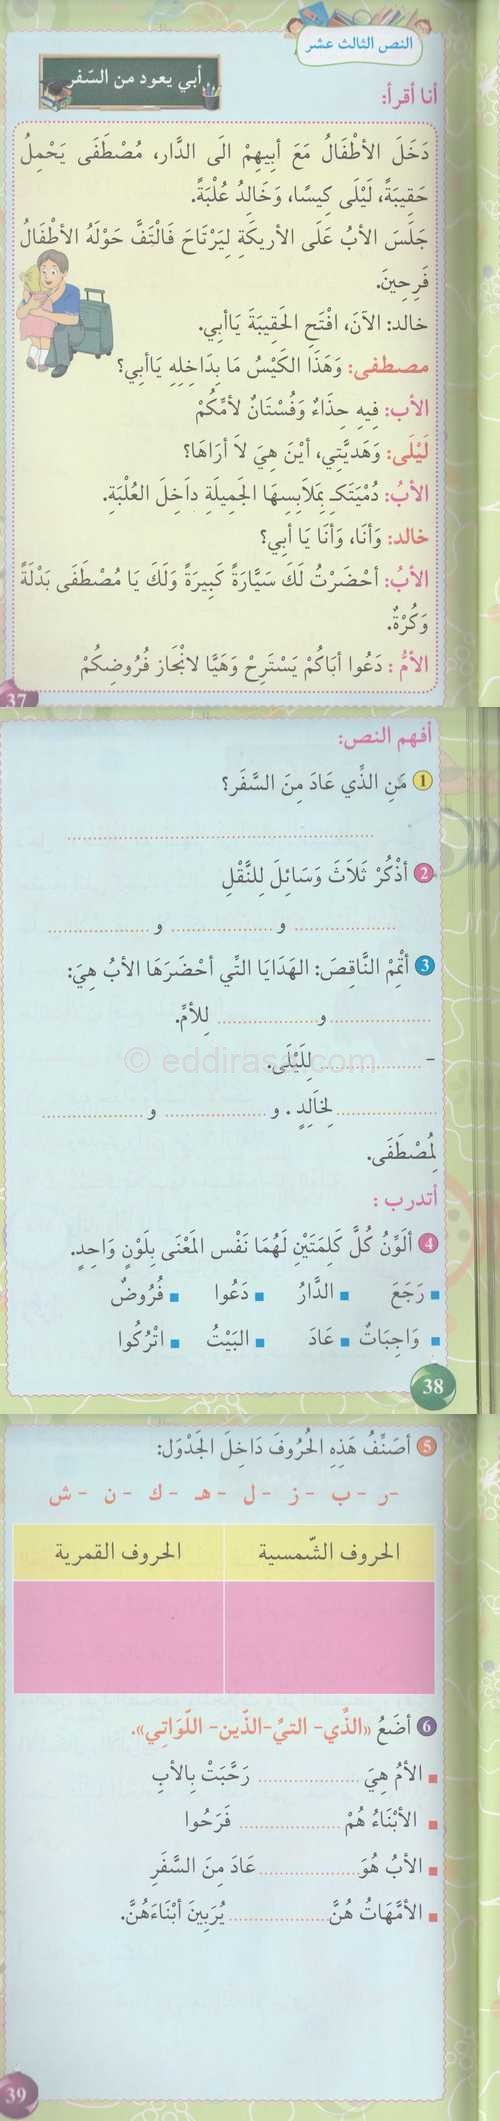 النص الثالث عشر
أبي يعود من السّفر
أنا أقرأ:
دَخَلَ الأطْفَالُ مَعَ أبِيهِمْ الَى الدَّار، مُصْطَفَى يَحْمِلُ
حَقِيبَةً، لَيْلَى كِيسًا، وَخَالِدُ عُلْبَةً.
جَلَسَ الأبُ عَلَى الأريكَةِ لِيَرْتَاحَ فَالْتَفَّ حَوْلَهُ الأطْفَالُ
فَرِحِينَ.
خالد: الآنَ، افْتَحِ الحَقِيبَةَ يَاأبي.
مصطفى: وَهَذَا الكَيْسُ مَا بِدَاخِلِهِ يَاأبي؟
الأب: فِيهِ حِذَاءٌ وَفُسْتَانٌ لأمِّكُمْ
لَيْلَى: وَهَديَّتِي، أيْنَ هِيَ لاَ أرَاهَا؟
الأبُ: دُمْيَتَكِـ بِمَلاَبِسِهَا الجَمِيلَةِ داَخِلَ العُلْبَةِ.
خالد: وَأنَا، وَأنَا يَا أبي؟
الأبُ: أحْضَرْتُ لَكَ سَيَّارَةً كَبِيرَةً وَلَكَ يَا مُصْطَفَى بَدْلَةً
وَكُرَةٌ.
الأمُّ : دَعُوا أبَاكُمْ يَسْتَرِحْ وَهَيَّا لانْجَاز فُرُوضِكُمْ
37
أفهم النص:
1 مَنِ الذِّي عَادَ مِنَ السَّفَر؟
2 أذْكُرْ ثَلاَثَ وَسَائِلَ لِلنَّقْلِ
و و
3 أتْمِمْ النَّاقِصَ: الهَدَايَا التِّي أحْضَرَهَا الأبُ هِيَ:
و لِلأمِّ.
- لِلَيْلَى.
© eddirasa.com
لِخَالِدٍ . و و
لِمُصْطَفَى.
أتدرب :
4 ألَوِّنُ كُلَّ كَلِمَتَيْنِ لَهُمَا نَفْس المَعْنَى بِلَوْنٍ وَاحِدٍ.
رَجَعَ الدَّارُ دَعُوا فُرُوضٌ
وَاجِبَاتٌ عَادَ البَيْتُ اتْرُكُوا
38
5 أصَنِّفُ هَذِهِ الحُرُوفَ دَاخِلَ الجَدْوَل:
-ر - ب - ز - ل - هـ - ك - ن - ش
الحروف الشّمسية الحروف القمرية
6 أضَعُ «الذِّي- التيِّ-الذّين- اللّوَاتِي».
الأمُ هِيَ رَحَّبَتْ بِالأبِ
الأبْنَاءُ هُمْ فَرَحُوا
الأبُ هُوَ عَادَ مِنَ السَّفَرِ
الأمَّهَاتُ هُنَّ يُرَبِينَ أبْنَاءَهُنَّ.
39